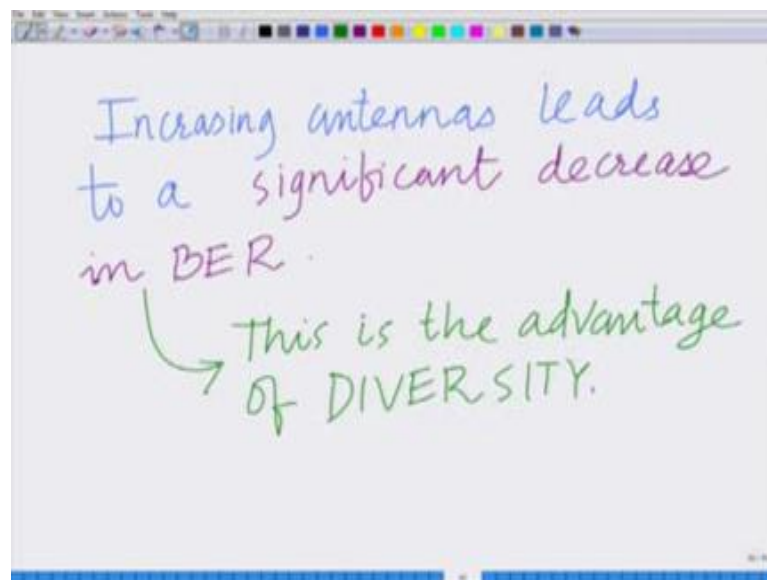 Incrasing antennas leads
to a significant decrease
in BER.
This is the advantage
of DIVERSITY.